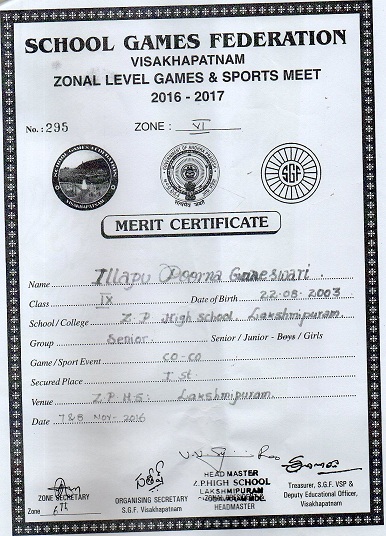 SCHOOL GAMES FEDERATION
VISAKHAPATNAM
ZONAL LEVEL GAMES & SPORTS MEET
2016 - 2017
No. : 295 ZONE : VI
SCHOOL GAMES FEDERATION VISAKHAPATNAM
GOVERNMENT OF ANDHRA PRADESH
SGF
MERIT CERTIFICATE
Name Illapu Poorna Ganeswari
Class IX Date of Birth 22-08-2003
School / College Z.P High school, Lakshmipuram.
Group Senior Senior / Junior - Boys / Girls
Game / Sport Event CO-CO
Secured Place I st.
Venue Z.P.H.S: Lakshmipuram.
Date 7&8 Nov- 2016
HEAD MASTER
Z.P.HIGH SCHOOL
LAKSHMIPURAM
HEADMASTER
ZONE SECRETARY
Zone 6th
ORGANISING SECRETARY
S.G.F. Visakhapatnam
Treasurer, S.G.F. VSP &
Deputy Educational Officer,
Visakhapatnam